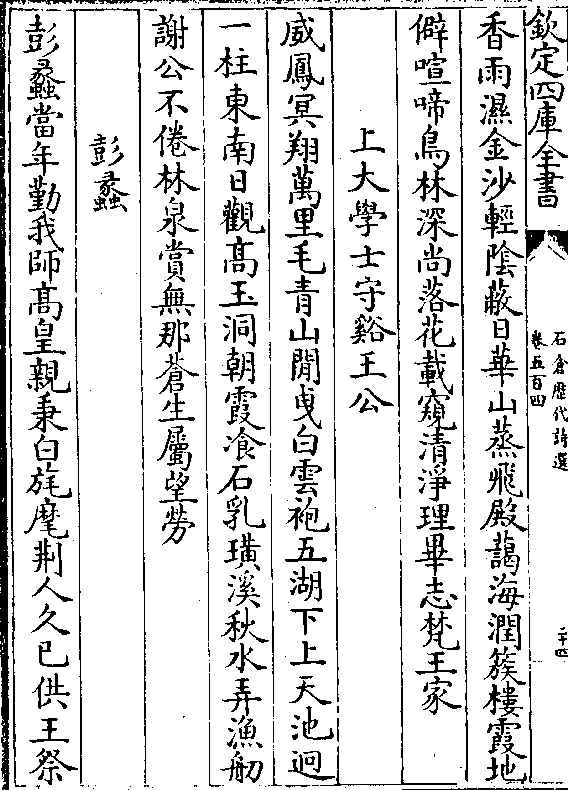 欽定四庫全書
石倉歴代詩選
卷五百四
二十四
香雨濕金沙輕陰蔽日華山蒸飛殿藹海潤簇樓霞地
僻喧啼鳥林深尚落花載窺清淨理畢志梵王家
上大學士守谿王公
威鳳冥翔萬里毛青山閒曵白雲袍五湖下上天池迥
一柱東南日觀髙玉洞朝霞飡石乳璜溪秋水弄漁舠
謝公不倦林泉賞無那蒼生屬望勞
彭蠡
彭蠡當年勤我師髙皇親秉白旄麾荆人久已供王祭